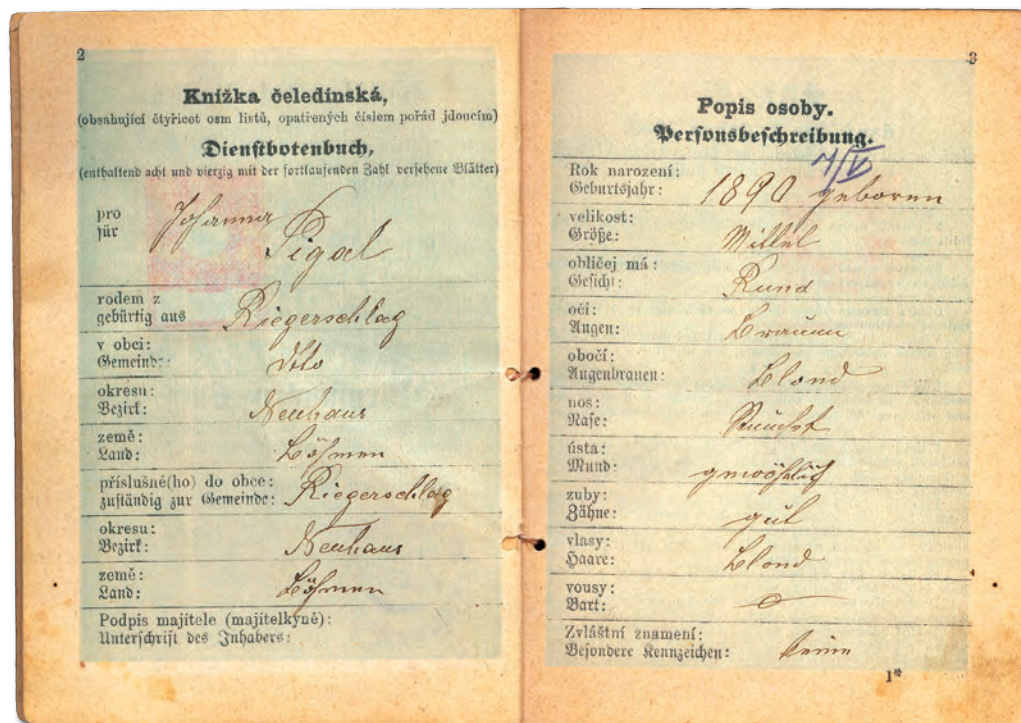 2
Knížka čeledínská,
(obsahující čtyřicet osm listů, opatřených číslem pořád jdoucím)
Dienstbotenbuch,
(enthaltend acht und vierzig mit der fortlaufenden Zahl versehene Blätter)
pro
für
Johanna
Pigal
rodem z
gebürtig aus Riegerschlag
v obci:
Gemeinde: dtto
okresu:
Bezirk: Neuhaus
země:
Land: Böhmen
příslušné(ho) do obce:
zuständig zur Gemeinde: Riegerschlag
okresu:
Bezirk: Neuhaus
země:
Land: Böhmen
Podpis majitele (majitelkyně):
Unterschrift des Inhabers:
3
Popis osoby.
Personsbeschreibung.
7/V
Rok narození:
Geburtsjahr: 1890 geboren
velikost:
Größe: Mittel
obličej má:
Gesicht: Rund
oči:
Augen: Braun
obočí:
Augenbrauen: Blond
nos:
Nase:
ústa:
Mund: gewöhnlich
zuby:
Zähne: gut
vlasy:
Haare: Blond
vousy:
Bart:
Zvláštní znamení:
Besondere Kennzeichen: keine
1*